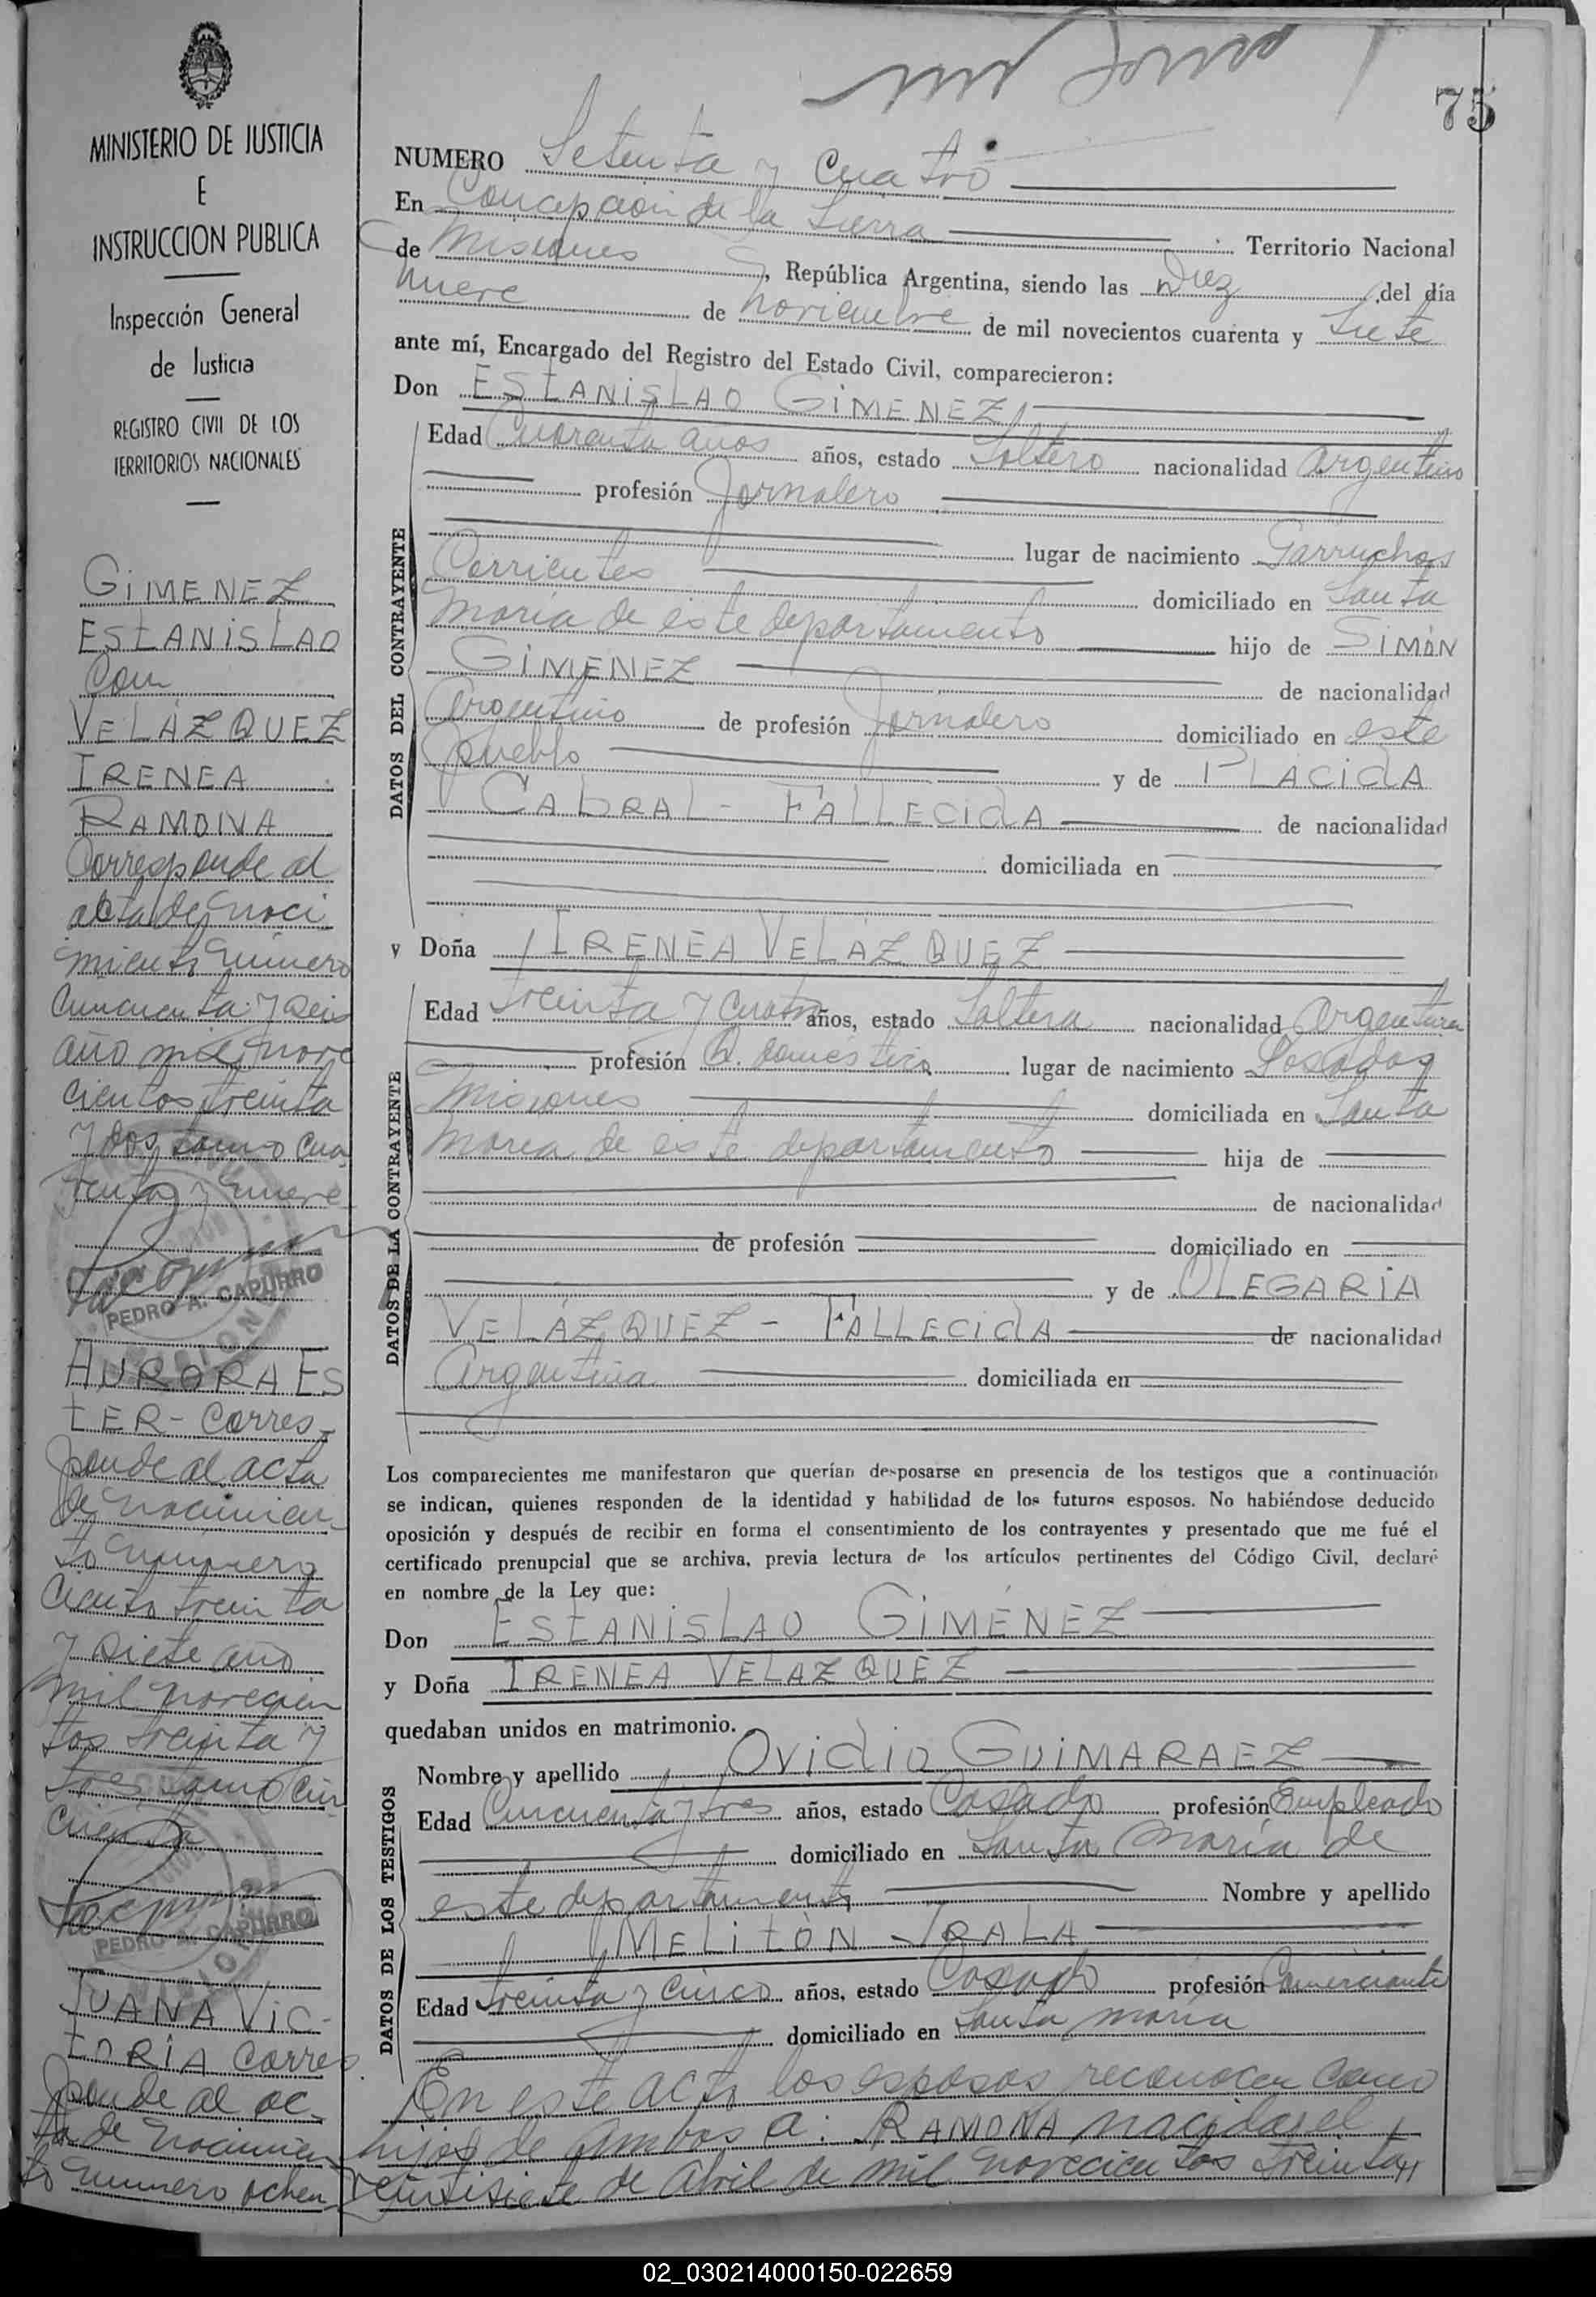 75
MINISTERIO DE JUSTICIA
E
INSTRUCCION PUBLICA
Inspección General
de Justicia
REGISTRO CIVIL DE LOS
TERRITORIOS NACIONALES
GIMENEZ
ESTANISLAO
con
VELÁZQUEZ
IRENEA
RAMONA
Corresponde al
acta de naci
miento número
cincuenta y seis
año mil nove
cientos treinta
y dos tomo cua
renta y nueve
PEDRO A. CAPURRO
AURORA ES
TER - Corres-
ponde al acta
de nacimien-
to número
ciento treinta
y siete año
mil novecien
tos treinta y
tres tomo cin
cuenta
PEDRO A. CAPURRO
JUANA VIC-
TORIA Corres
ponde al ac-
ta de nacimien
to número ochen
NUMERO Setenta y cuatro
En Concepción de la Sierra Territorio Nacional
de Misiones, República Argentina, siendo las diez del día
nueve de noviembre de mil novecientos cuarenta y siete
ante mí, Encargado del Registro del Estado Civil, comparecieron:
Don ESTANISLAO GIMENEZ
DATOS DEL CONTRAYENTE
Edad Cuarenta años años, estado Soltero nacionalidad Argentino
profesión Jornalero
lugar de nacimiento Garruchos
Corrientes domiciliado en Santa
María de este departamento hijo de SIMÓN
GIMENEZ de nacionalidad
Argentino de profesión Jornalero domiciliado en este
pueblo y de PLACIDA
CABRAL - FALLECIDA de nacionalidad
domiciliada en
y Doña IRENEA VELÁZQUEZ
DATOS DE LA CONTRAYENTE
Edad treinta y cuatro años, estado Soltera nacionalidad Argentina
profesión Q. domésticos lugar de nacimiento Posadas
Misiones domiciliada en Santa
María de este departamento hija de
de nacionalidad
de profesión domiciliado en
y de OLEGARIA
VELÁZQUEZ - FALLECIDA de nacionalidad
Argentina domiciliada en
Los comparecientes me manifestaron que querían desposarse en presencia de los testigos que a continuación
se indican, quienes responden de la identidad y habilidad de los futuros esposos. No habiéndose deducido
oposición y después de recibir en forma el consentimiento de los contrayentes y presentado que me fué el
certificado prenupcial que se archiva, previa lectura de los artículos pertinentes del Código Civil, declaré
en nombre de la Ley que:
Don ESTANISLAO GIMÉNEZ
y Doña IRENEA VELAZQUEZ
quedaban unidos en matrimonio.
DATOS DE LOS TESTIGOS
Nombre y apellido OVIDIO GUIMARAEZ
Edad Cincuenta y tres años, estado Casado profesión Empleado
domiciliado en Santa María de
este departamento Nombre y apellido
MELITÓN IRALA
Edad treinta y cinco años, estado Casado profesión Comerciante
domiciliado en Santa María
En este acto los esposos reconocen como
hijos de ambos a: RAMONA nacida el
veintisiete de abril de mil novecientos treinta y
02_030214000150-022659